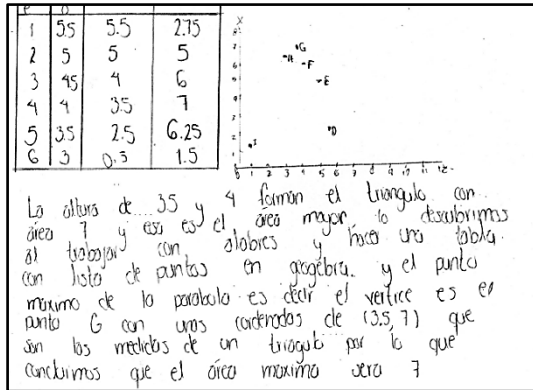 1 5.5 5.5 2.75
2 5 5 5
3 45 4 6
4 4 3.5 7
5 3.5 2.5 6.25
6 3 0.5 1.5
X
G
A F
E
D
I
1 2 3 4 5 6 7 8 9 10 11 12
La altura de 35 y 4 forman el triangulo con
área 7 y esa es el área mayor, lo descubrimos
al trabajar con alabres y hacer una tabla
con lista de puntos en geogebra. y el punto
máximo de la parabola es decir el vertice es el
punto G con unas cordenadas de (3.5, 7) que
son las medidas de un triagulo por lo que
concluimos que el área maxima sera 7